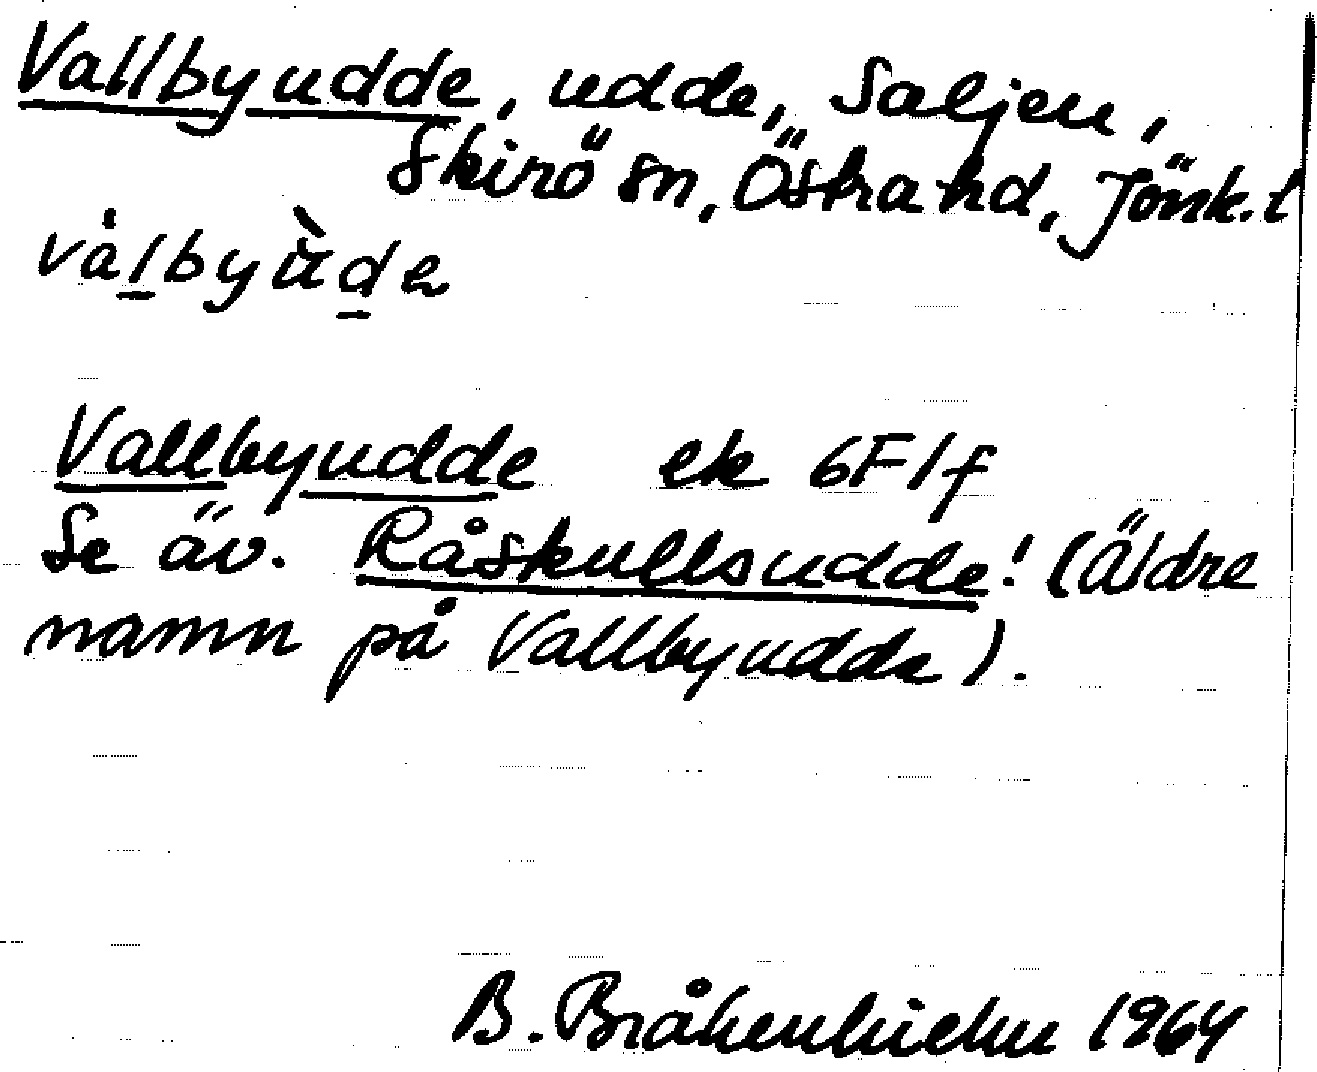 Vallbyudde, udde, Saljen,
Skirö sn, Östra hd, Jönk. l
vålbyùde
Vallbyudde ek 6F1f
Se äv. Råskullsudde! (Äldre
namn på Vallbyudde).
B. Bråkenhielm 1964